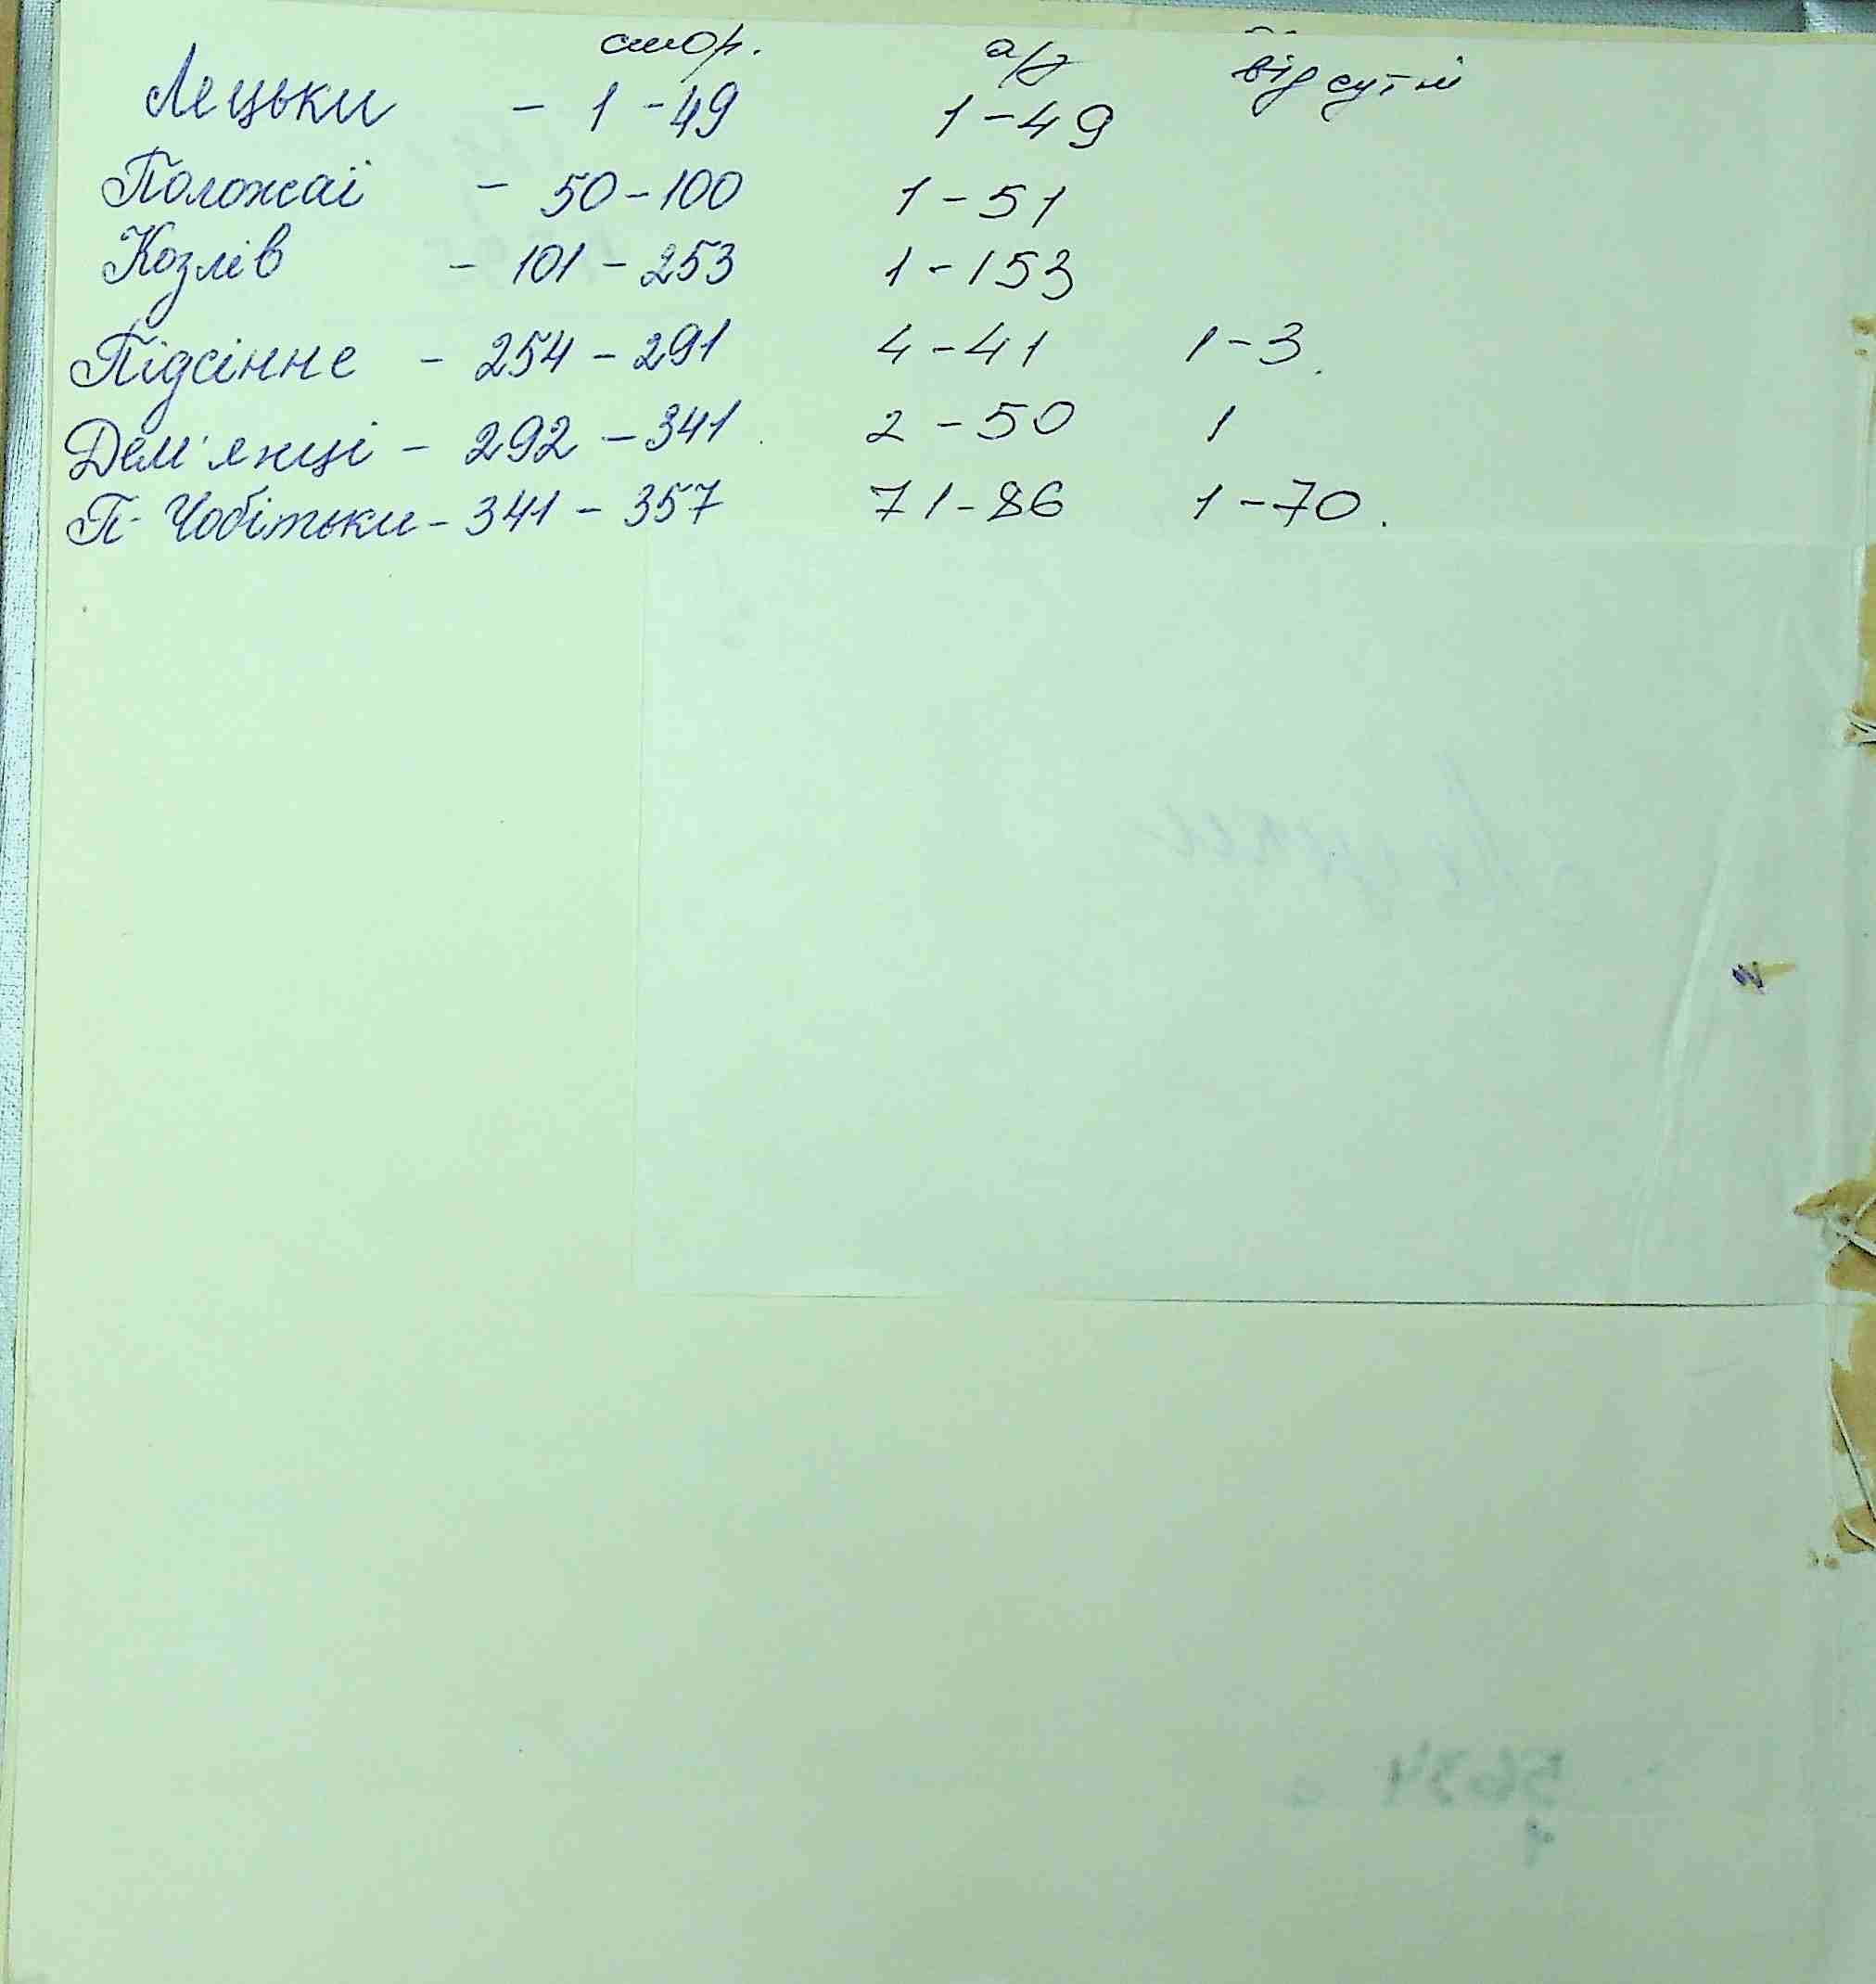 стор. а/з відсутні
Лецьки - 1 - 49 1 - 49
Положаї - 50 - 100 1 - 51
Козлів - 101 - 253 1 - 153
Підсінне - 254 - 291 4 - 41 1 - 3.
Дем'янці - 292 - 341 2 - 50 1
П-Чобітьки - 341 - 357 71 - 86 1 - 70.